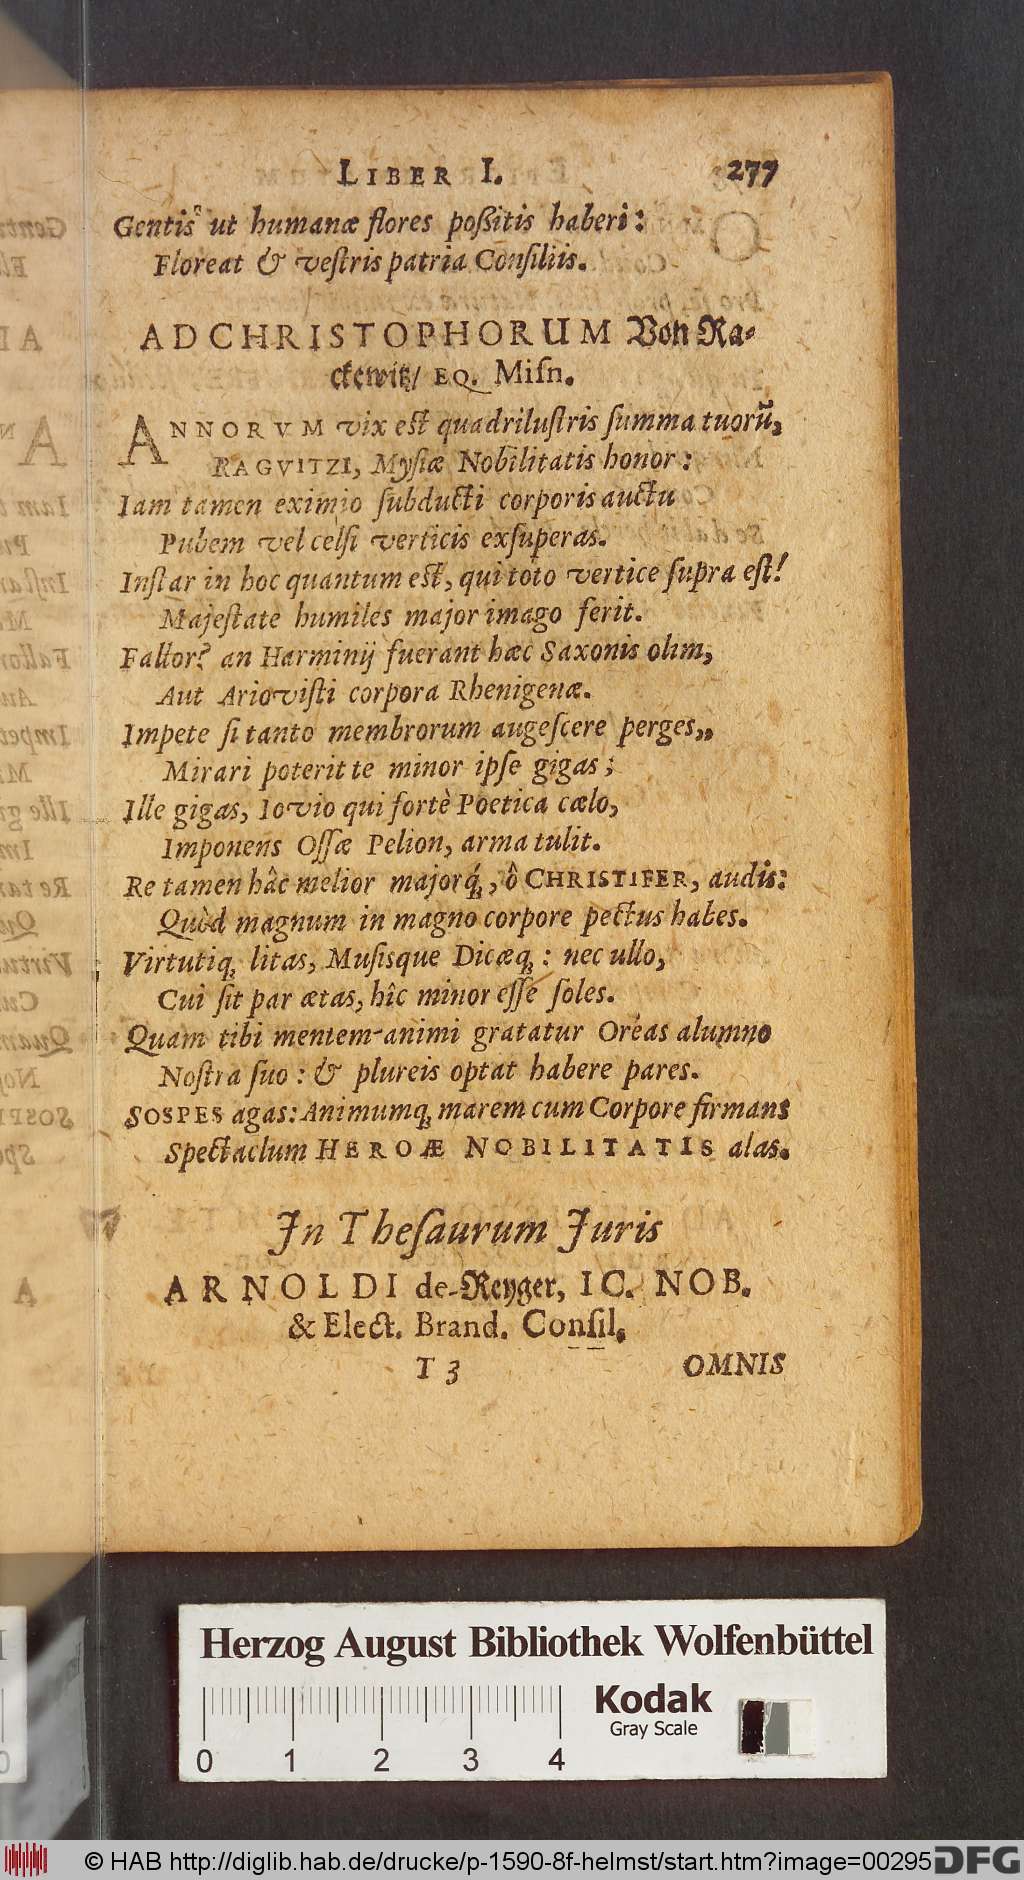 LIBER I. 277
Gentis ut humanæ flores poßitis haberi:
Floreat & vestris patria Consiliis.
AD CHRISTOPHORUM Von Ra-
ckewitz/ EQ. Misn.
ANNORVM vix est quadrilustris summa tuorũ,
RAGVITZI, Mysiæ Nobilitatis honor:
Iam tamen eximio subducti corporis auctu
Pubem vel celsi verticis exsuperas.
Instar in hoc quantum est, qui toto vertice supra est!
Majestate humiles major imago ferit.
Fallor? an Harminij fuerant hæc Saxonis olim,
Aut Ariovisti corpora Rhenigenæ.
Impete si tanto membrorum augescere perges,,
Mirari poterit te minor ipse gigas;
Ille gigas, Iovio qui fortè Poetica cælo,
Imponens Ossæ Pelion, arma tulit.
Re tamen hâc melior majorq́;, ô CHRISTIFER, audis:
Quòd magnum in magno corpore pectus habes.
Virtutiq; litas, Musisque Dicæq;: nec ullo,
Cui sit par ætas, hîc minor esse soles.
Quam tibi mentem animi gratatur Oreas alumno
Nostra suo: & plureis optat habere pares.
SOSPES agas: Animumq; marem cum Corpore firmans
Spectaclum HEROÆ NOBILITATIS alas.
In Thesaurum Juris
ARNOLDI de-Reyger, IC. NOB.
& Elect. Brand. Consil.
T 3 OMNIS
Herzog August Bibliothek Wolfenbüttel
Kodak
Gray Scale
0 1 2 3 4
© HAB http://diglib.hab.de/drucke/p-1590-8f-helmst/start.htm?image=00295
DFG